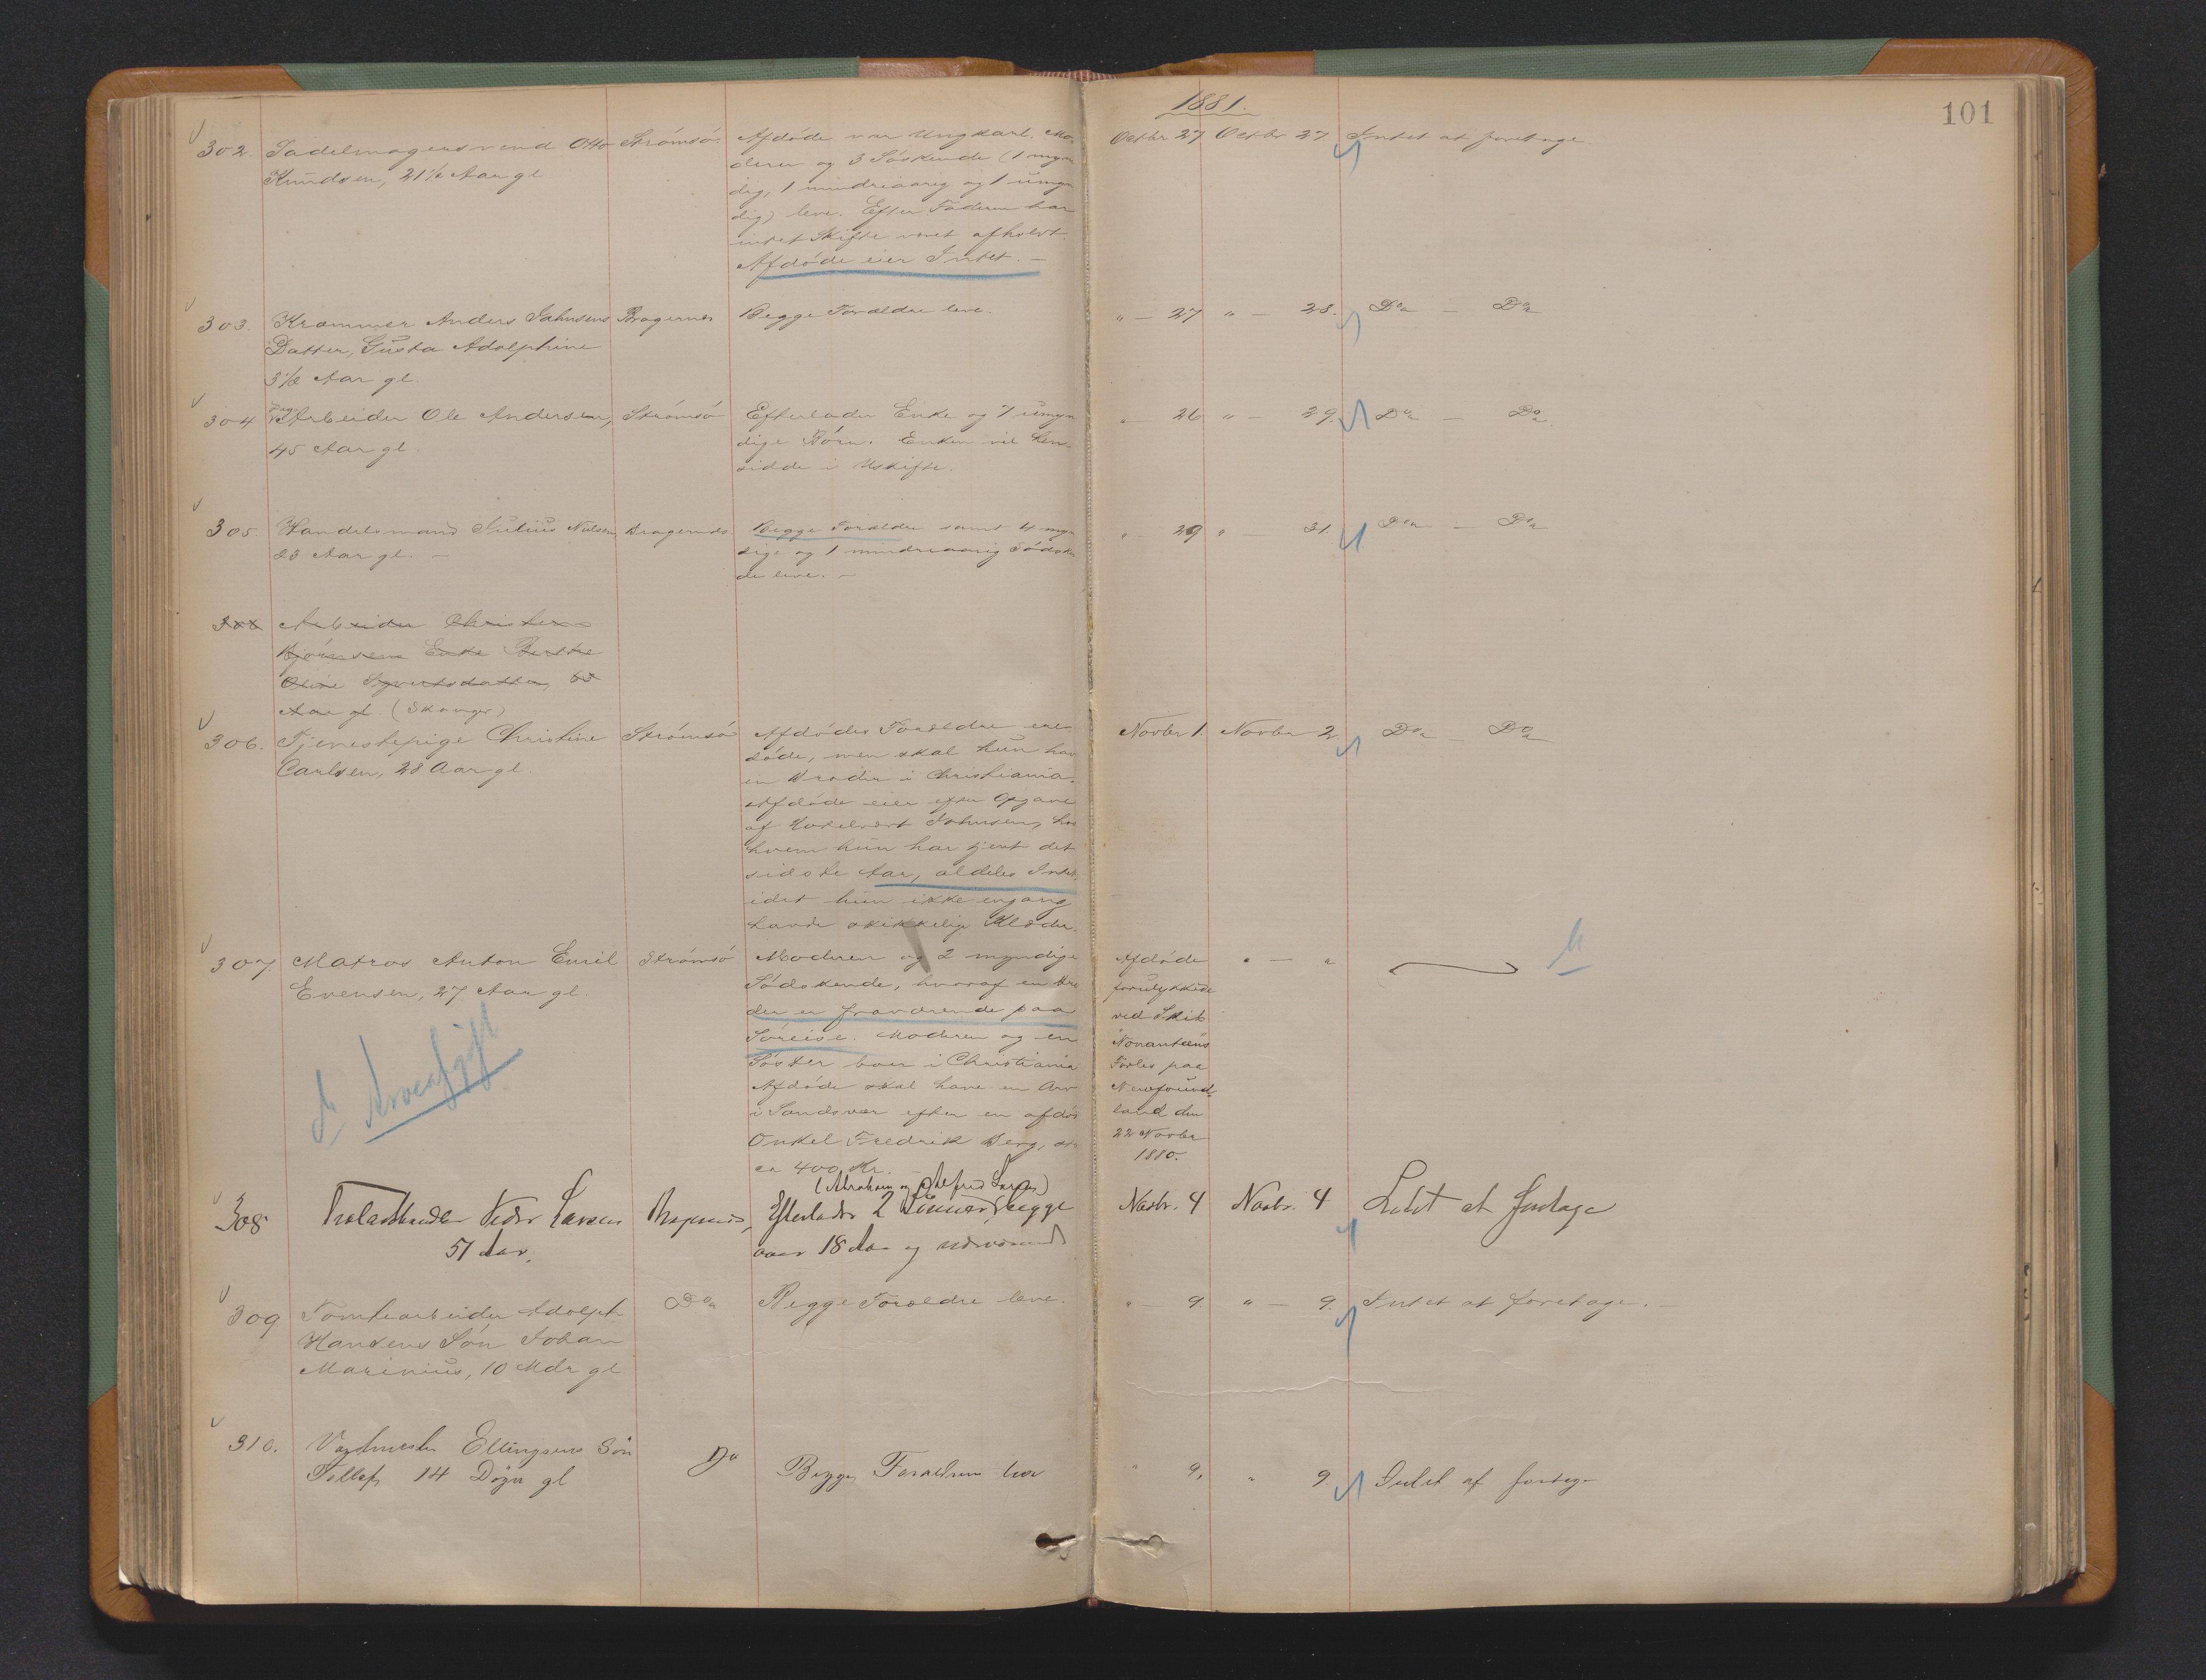 1881.
101
302. Sadelmagersvend Otto
Knudsen, 21½ Aar gl
Strømsø
Afdøde var Ungkarl. Mo-
deren og 3 Søskende (1 myn
dig, 1 mindreaarig og 1 umyn
dig) leve. Efter Faderen har
intet Skifte været afholdt.
Afdøde eier Intet. –
Octbr 27 Octbr 27 Intet at foretage
303. Kræmmer Anders Jahnsens
Datter, Gusta Adolphine
3½ Aar gl.
Bragernæs
Begge Forældre leve.
" – 27 " – 28. Do – Do
304 Arbeider Ole Andersen,
45 Aar gl
Strømsø
Efterlader Enke og 7 umyn
dige Børn. Enken vil hen-
sidde i Uskifte.
" – 26 " – 29. Do – Do
305. Handelsmand Julius Nielsen
23 Aar gl. –
Bragernæs
Begge Forældre samt 4 myn
dige og 1 mindreaarig Søsken
de leve. –
" – 29 " – 31. Do – Do
306 Arbeider Christen
Bjørnsens Enke Berthe
Oline Syvertsdatter, 60
Aar gl. (Skoger)
306. Tjenestepige Christine
Carlsen, 28 Aar gl.
Strømsø
Afdødes Forældre ere
døde, men skal hun have
en Broder i Christiania.
Afdøde eier efter Opgave
af Hotelvært Johnsen, hos
hvem hun har tjent det
sidste Aar, aldeles Intet,
idet hun ikke engang
havde skikkelige Klæder.
Novbr 1 Novbr 2 Do – Do
307. Matros Anton Emil
Evensen, 27 Aar gl.
Strømsø
Moderen og 2 myndige
Sødskende, hvoraf en Bro
der er fraværende paa
Søreise. Moderen og en
Søster boer i Christiania
Afdøde skal have en Arv
i Sandsvær efter en afdød
Onkel Fredrik Berg, stor
ca 400 Kr. –
Afdøde
forulykkede
ved Skib
Nonantums
Forlis paa
Newfound-
land den
22 Novbr
1880.
" – "
Arveafgift
308 Peder Larsen
51 Aar.
Bragernæs,
(Abraham og Alfred Larsen)
Efterlader 2 Sønner, begge
over 18 Aar og
Novbr. 4 Novbr. 4 Intet at foretage
309 Tomtearbeider Adolph
Hansens Søn Johan
Marinius, 10 Mdr gl
Do
Begge Forældre leve.
" – 9. " – 9. Intet at foretage. –
310. Vagtmester Ellingsens Søn
Tellef 14 Døgn gl
Do
Begge Forældrene leve
" 9, " 9 Intet at foretage